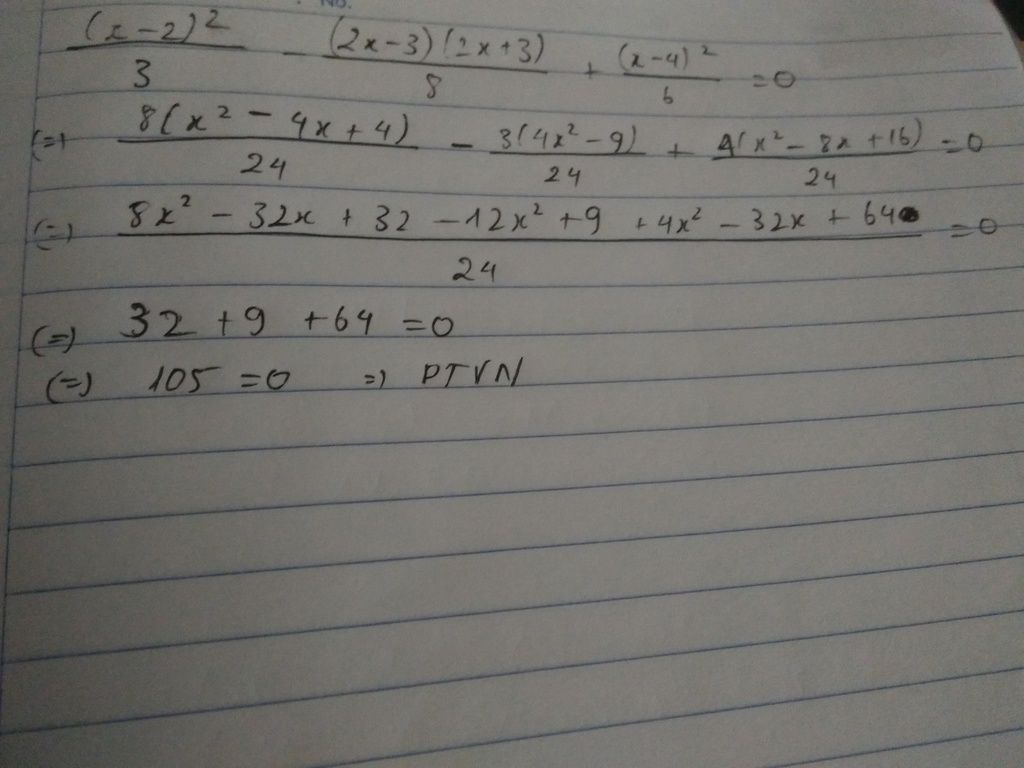 No.
(x-2)²/3 - (2x-3)(2x+3)/8 + (x-4)²/6 =0
(=) 8(x² - 4x+4)/24 - 3(4x²-9)/24 + 4(x²-8x+16)/24 =0
(=) 8x² - 32x + 32 -12x² +9 +4x² -32x + 64/24 =0
(=) 32 +9 +64 =0
(=) 105 =0 => PTVN